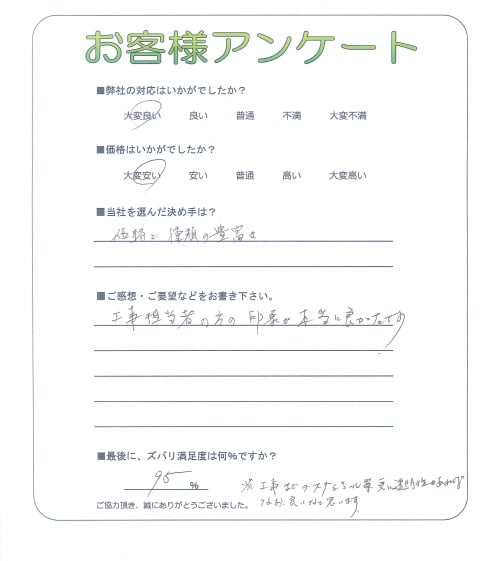 お客様アンケート
■弊社の対応はいかがでしたか？
大変良い 良い 普通 不満 大変不満
■価格はいかがでしたか？
大変安い 安い 普通 高い 大変高い
■当社を選んだ決め手は？
価格と種類の豊富さ
■ご感想・ご要望などをお書き下さい。
工事担当者の方の印象が本当に良かったです
■最後に、ズバリ満足度は何％ですか？
95 %
※工事までのスケジュール等更に透明性があれば
なお良いかと思います
ご協力頂き、誠にありがとうございました。